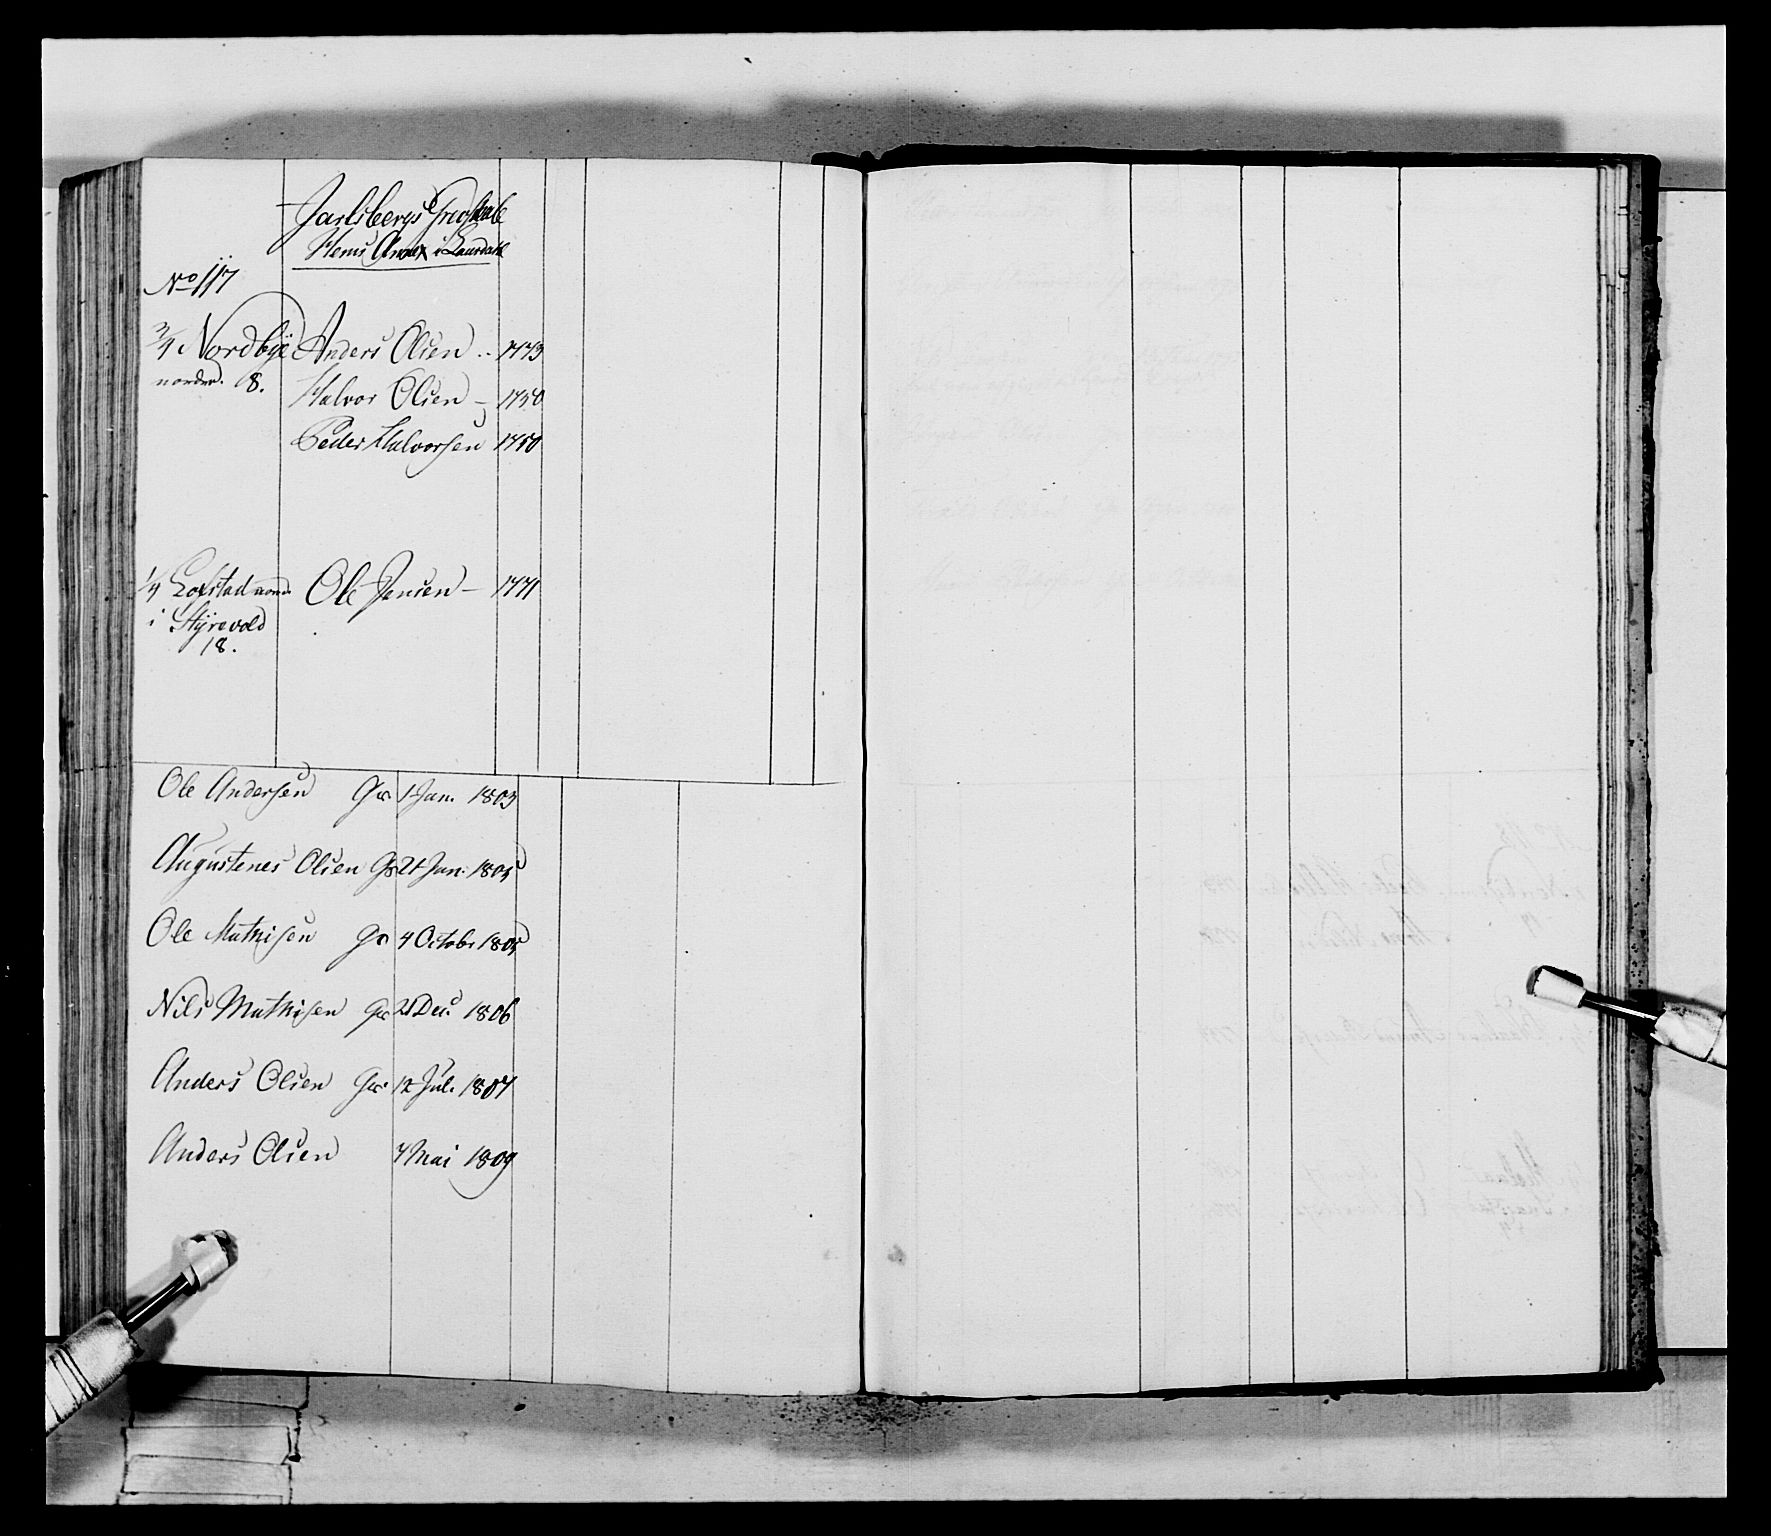 Jarlsbergs Grevskab
Hems Annex i Laurdahl
No 117
3/4 Nordbÿe Anders Olsen .. 1773
nordre. 8. Halvor Olsen - 1750
Peder Halvorsen 1780
1/4 Lofstad
Ole Jensen - 1771
i Styrevold
18.
Ole Andersen Gr. 1 Jan. 1803
Augustenes Olsen Gr 21 Jan. 1805
Ole Mathisen Gr 4 Octobr 1805
Nils Mathisen Gr 21 Dec. 1806
Anders Olsen Gr. 12 Jul. 1807
Anders Olsen 7 Mai 1809